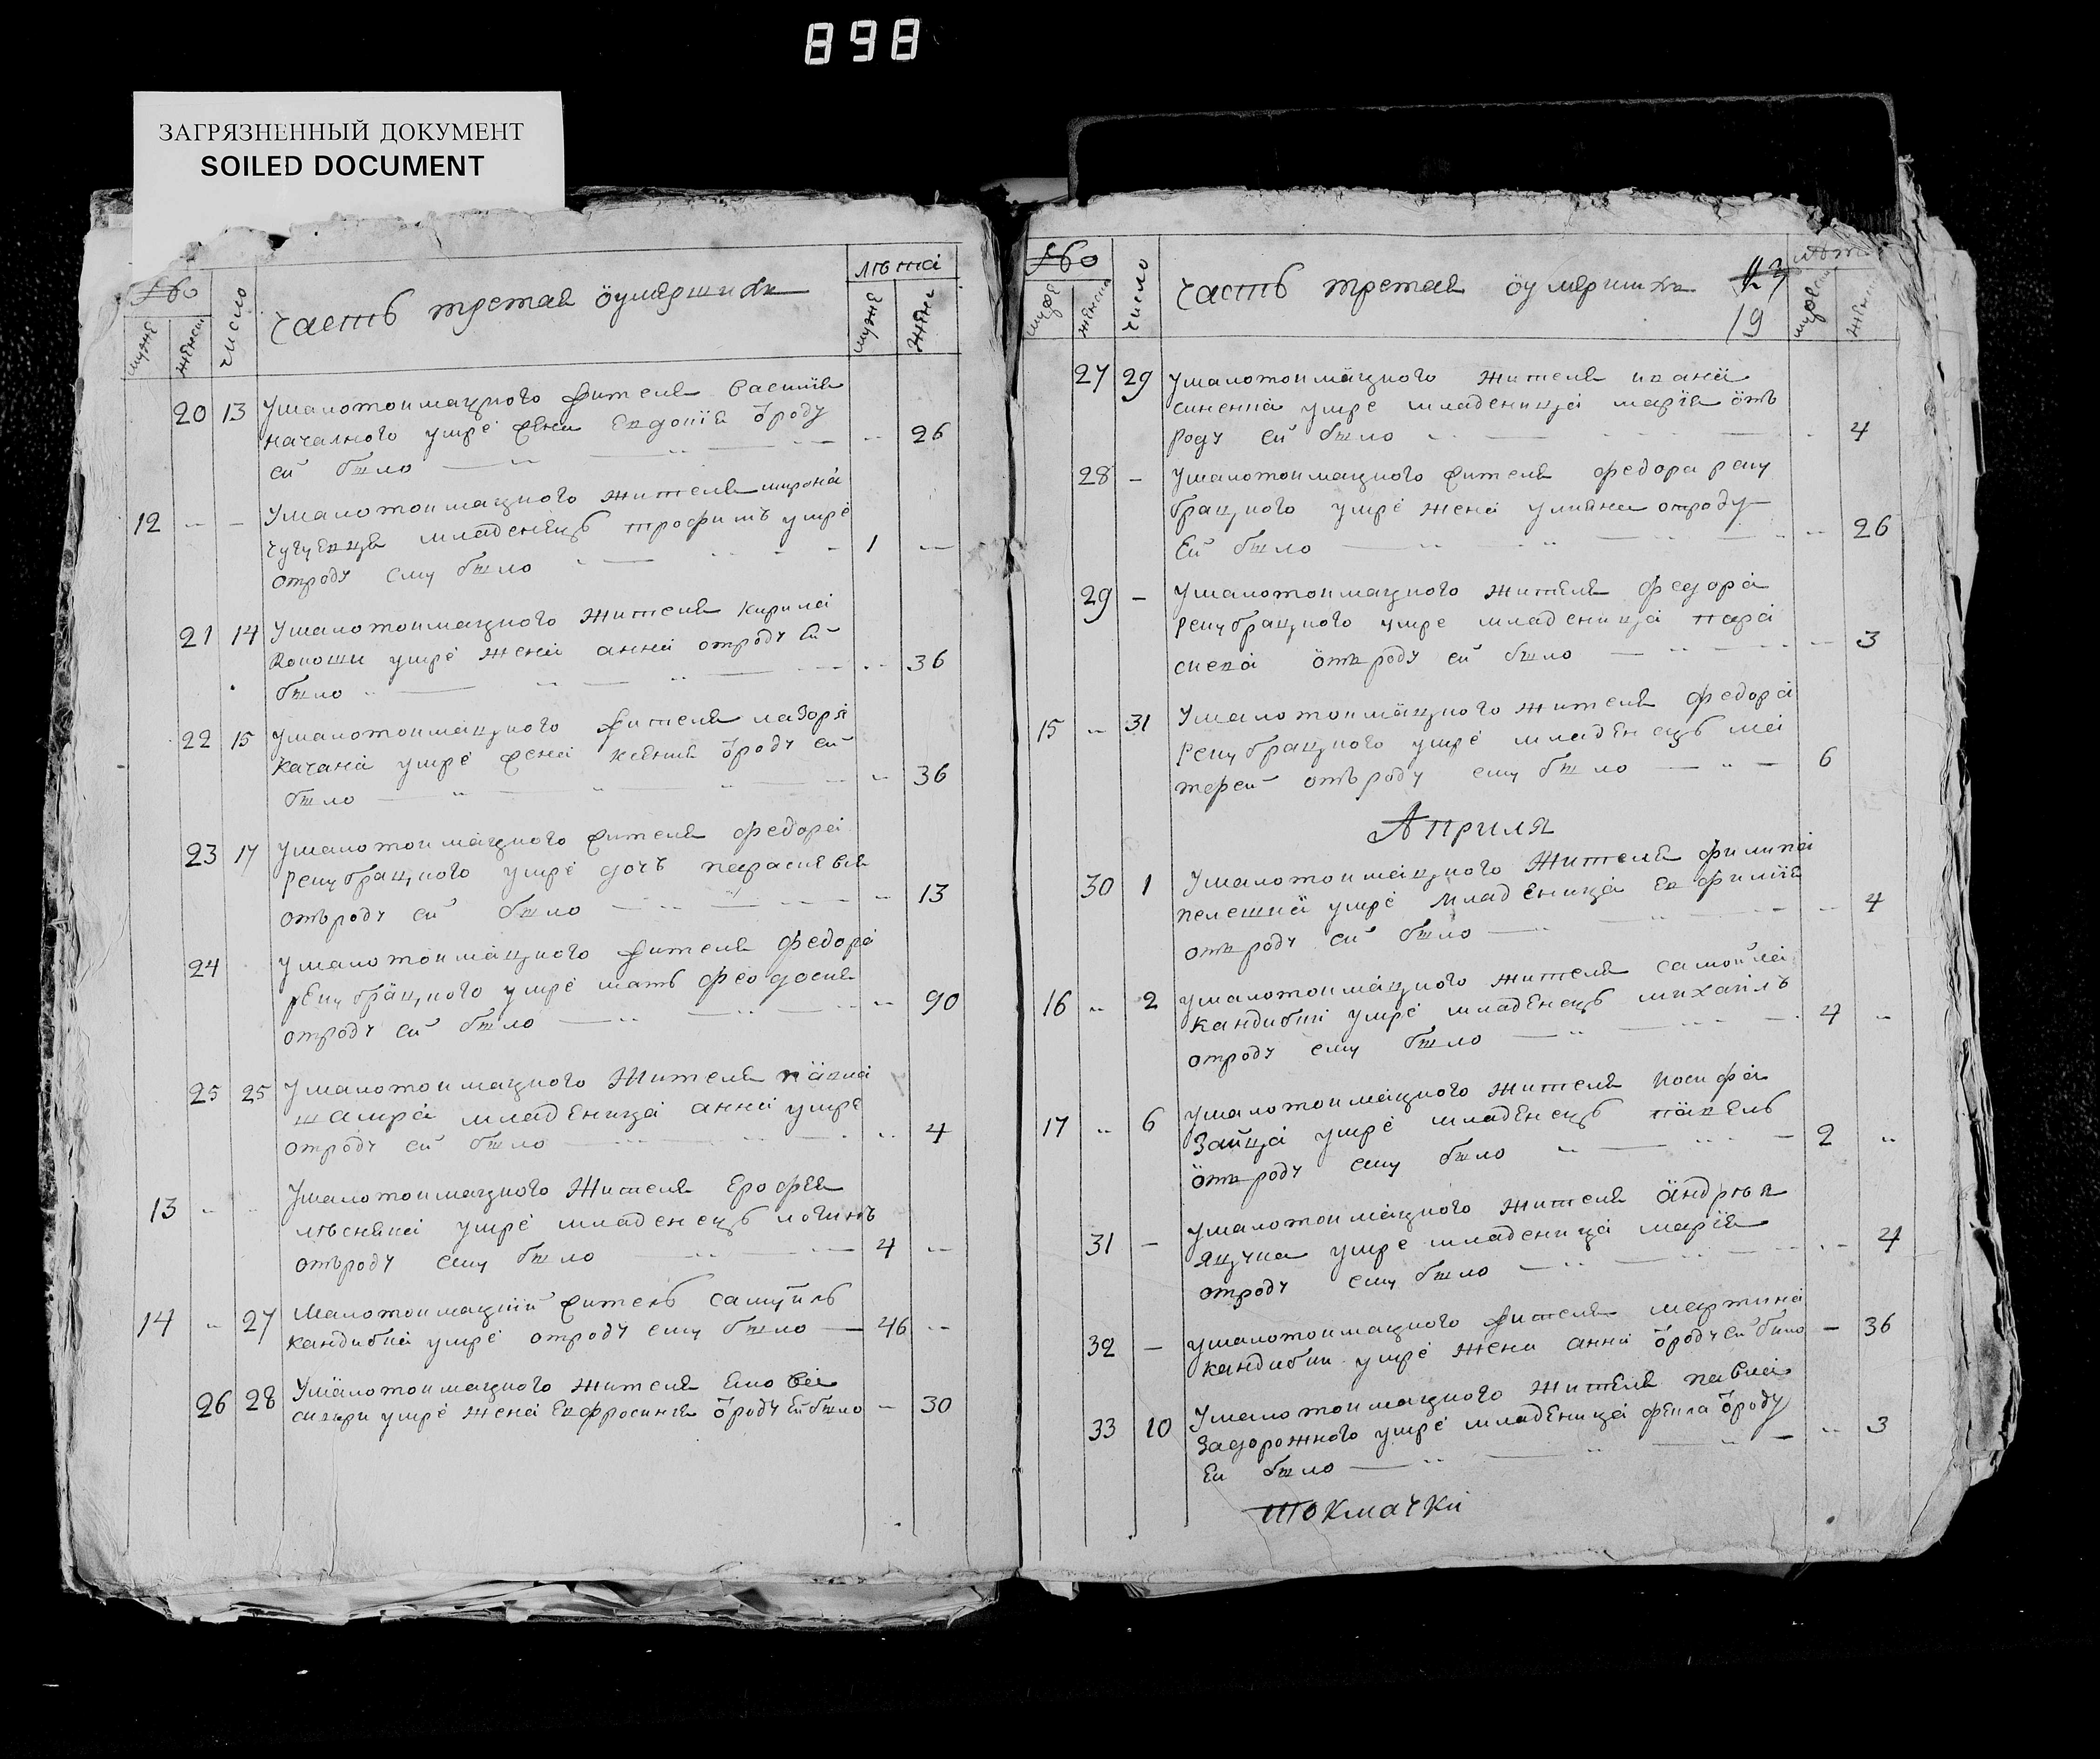 898
ЗАГРЯЗНЕННЫЙ ДОКУМЕНТ
SOILED DOCUMENT
№
муже
женск
число
Часть третая ӧумершихъ
лѣта
муже
жене
20 13 Умалотокмацкого жителя Василїя
началного умре жена Евдокїя ӧроду
ей было 26
12 Умалотокмацкого жителя мирона
чугуевця младенецъ трофимъ умре
отроду ему было 1
21 14 Умалотокмацкого жителя кирила
коноши умре жена анна отроду ей
было 36
22 15 Умалотокмацкого жителя лазоря
качана умре жена ксения ӧроду ей
было 36
23 17 Умалотокмацкого жителя федора
рецубрацкого умре дочъ парасковия
отъроду ей было 13
24 Умалотокмацкого жителя федора
рецубрацкого умре мать феодосия
отроду ей было 90
25 25 Умалотокмацкого жителя павла
шамра младеница анна умре
отроду ей было 4
13 Умалотокмацкого жителя Ерофея
лѣсняка умре младенецъ логинъ
отъроду ему было 4
14 27 Малотокмацкий житель самуилъ
кандибка умре отроду ему было 46
26 28 Умалотокмацкого жителя
умре жена Евфросиния ӧроду ей было 30
№
муже
женска
число
Часть третая ӧумершихъ
19
лѣта
27 29 Умалотокмацкого жителя ивана
синенка умре младеница марїя ӧтъ
роду ей было 4
28 Умалотокмацкого жителя федора рецу
брацкого умре жена улияна отроду
Ей было 26
29 Умалотокмацкого жителя федора
рецубрацкого умре младеница пара
скева ӧтъроду ей было 3
15 31 Умалотокмацкого жителя федора
рецубрацкого умре младенецъ ма
тфей отъроду ему было 6
Априля
30 1 Умалотокмацкого жителя филипа
пелешка умре младеница Евфимїя
отъроду ей было 4
16 2 Умалотокмацкого жителя самойла
кандибки умре младенецъ михаилъ
отроду ему было 4
17 6 Умалотокмацкого жителя иосифа
зайца умре младенецъ павелъ
ӧтъроду ему было 2
31 Умалотокмацкого жителя ӓндрѣя
яцука умре младеница марїя
отроду ему было 4
32 Умалотокмацкого жителя мартина
кандибки умре жена анна ӧроду ей было 36
33 10 Умалотокмацкого жителя павла
Задорожного умре младеница фекла ӧроду
Ей было 3
токмачки